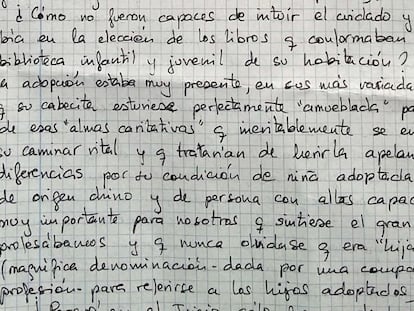 ¿ Cómo no fueron capaces de intuir el cuidado y
bía en la elección de los libros q conformaban
biblioteca infantil y juvenil de su habitación?
a adopción estaba muy presente, en sus más variada
q su cabecita estuviese perfectamente "amueblada" pa
de esas "almas caritativas" q inevitablemente se en
su caminar vital y q tratarían de herirla apelan
diferencias por su condición de niña adoptada
de origen chino y de persona con altas capac
muy importante para nosotros q sintiese el gran
profesábamos y q nunca olvidase q era "hija
(magnífica denominación - dada por una compa
profesión - para referirse a los hijos adoptados